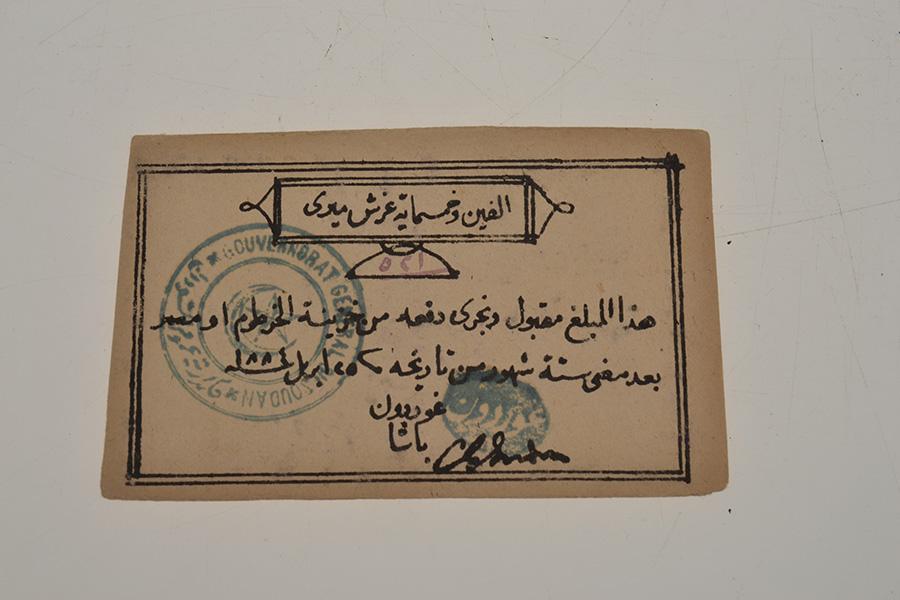 الفين وخمسماية غرش ميرى
هذا المبلغ مقبول وتجرى دفعه من خزينة الخرطوم او مصر
بعد مضى ستة شهور من تاريخه ٢٥ ابريل ١٨٨٤ سنه
غوردون
باشا
GOUVERNORAT GENERAL DU SOUDAN